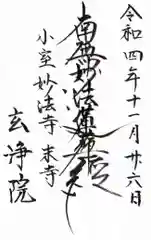 令和四年十一月廿六日
南無妙法蓮華経
小室妙法寺末寺
玄浄院